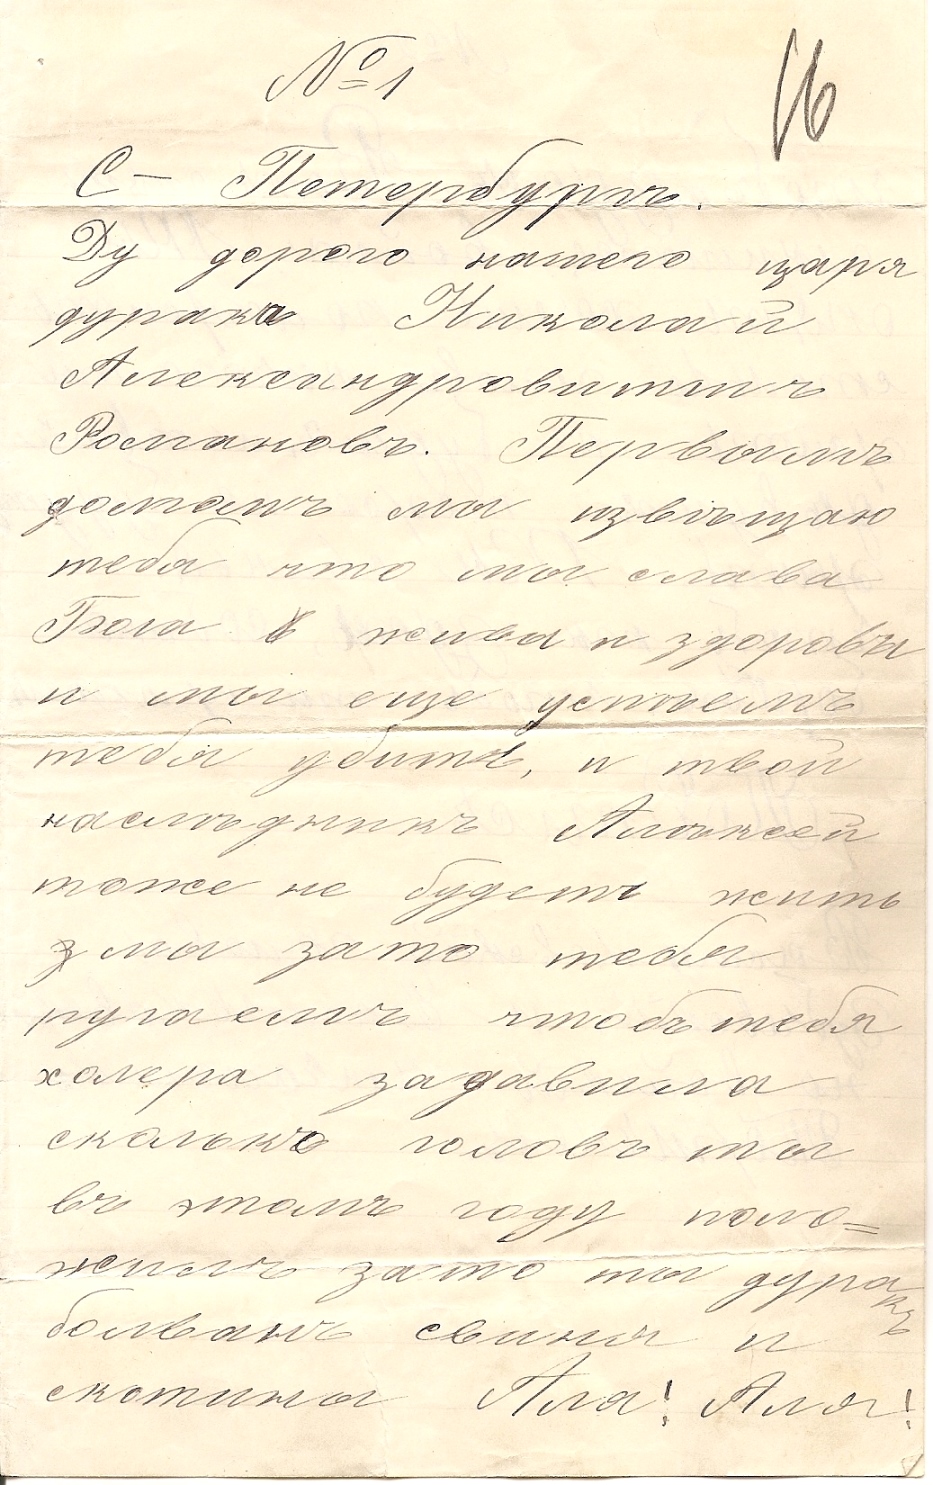 № 1
16
С – Петербургъ.
Ду дорого нашего царя
дурака Николай
Александровитшъ
Романовъ. Первымъ
долгомъ мы извѣщаю
тебя что мы слава
Бога жива и здоровы
и мы еще успѣемъ
тебя убить, и твой
наслѣдникъ Алѣксей
тоже не будетъ жить
мы зато тебя
ругаемъ чтобъ тебя
холера задавила
сколько головъ ты
въ этомъ году поло=
жилъ зато ты дуракъ
болванъ свиня и
скотины Ала! Аля!